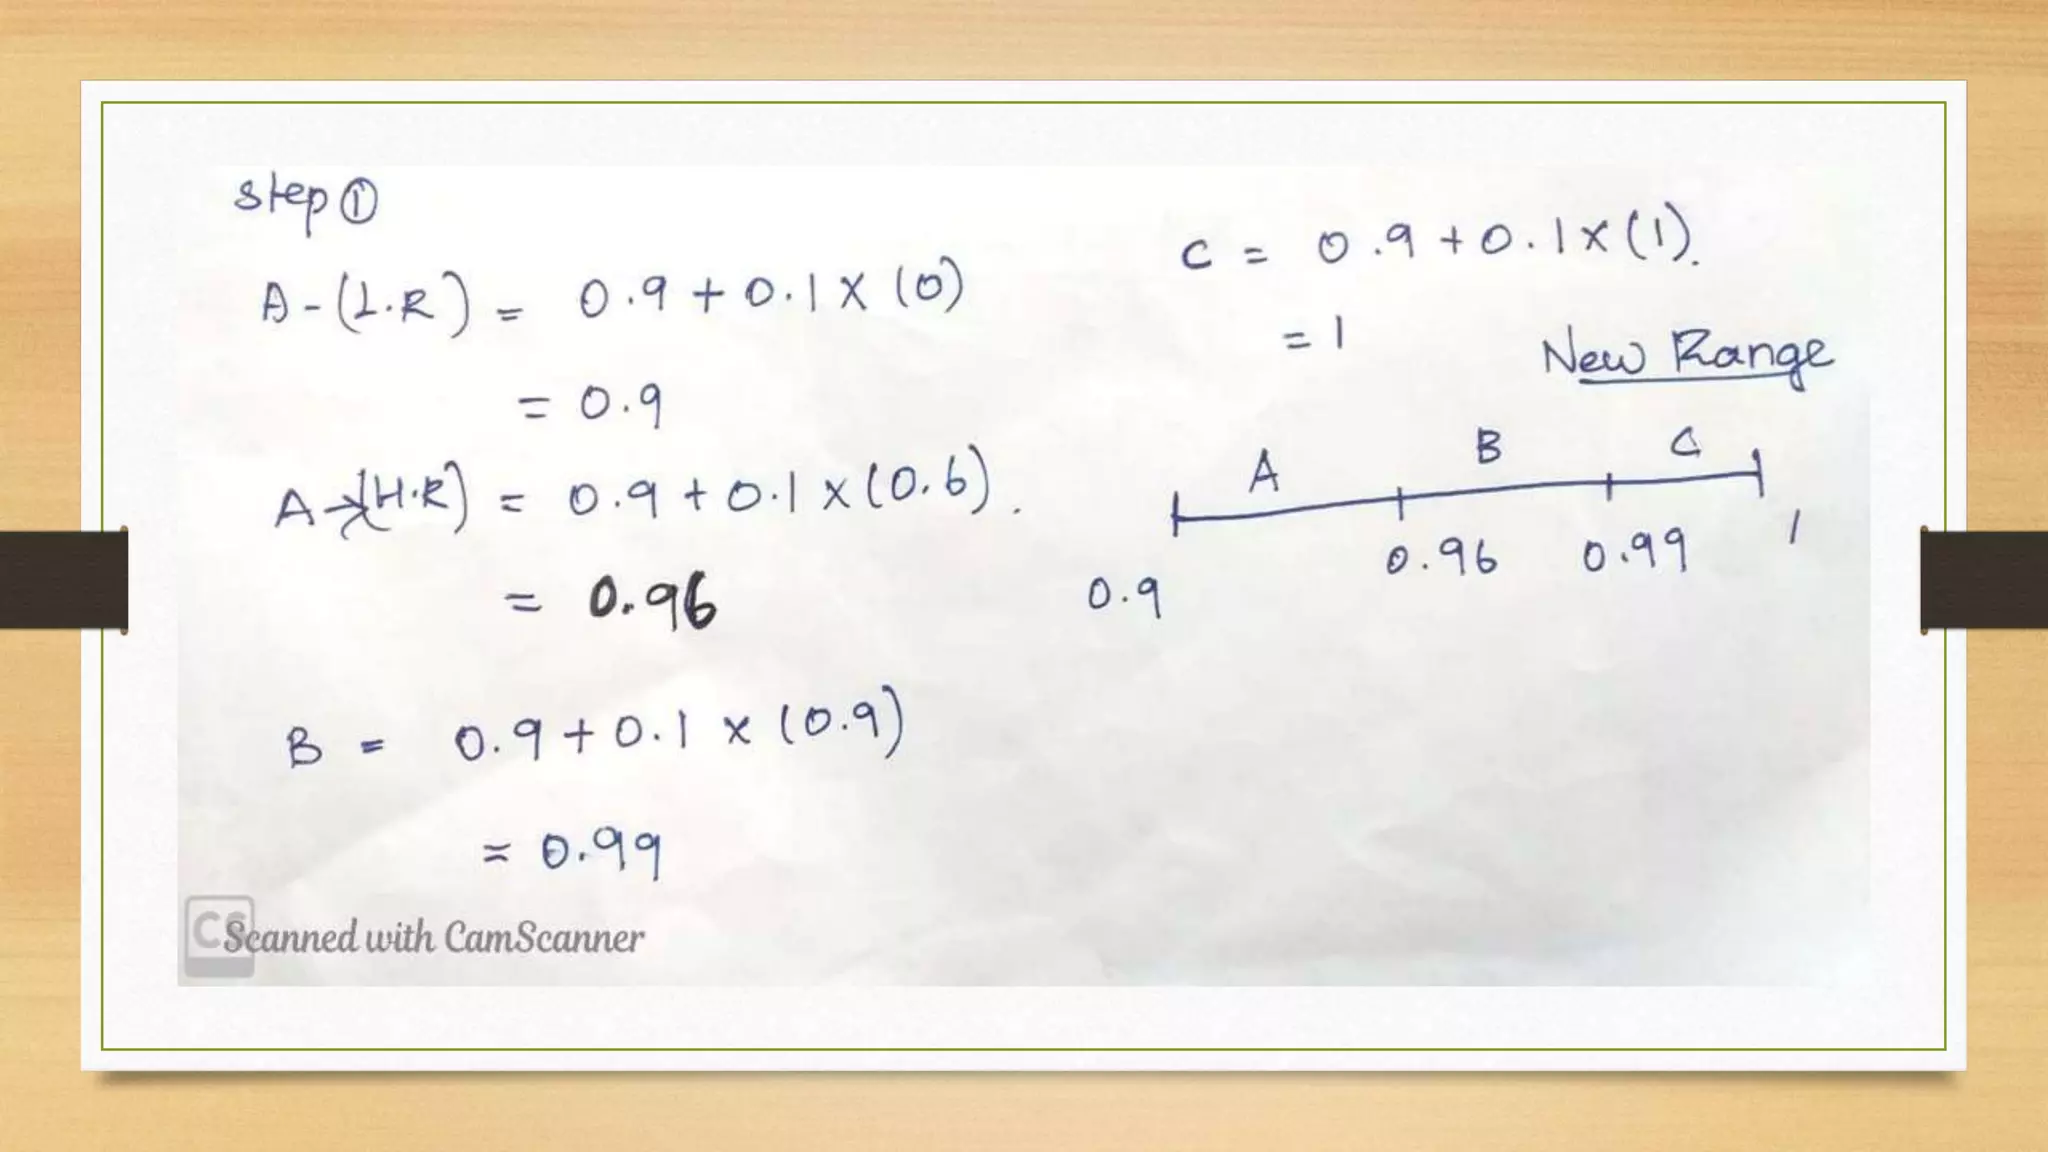 step ①
A - (L.R) = 0.9 + 0.1 X (0)
= 0.9
A → (H.R) = 0.9 + 0.1 x (0.6).
= 0.96
B = 0.9 + 0.1 x (0.9)
= 0.99
C = 0.9 + 0.1 x (1).
= 1
New Range
A B C
0.9 0.96 0.99 1
CS Scanned with CamScanner